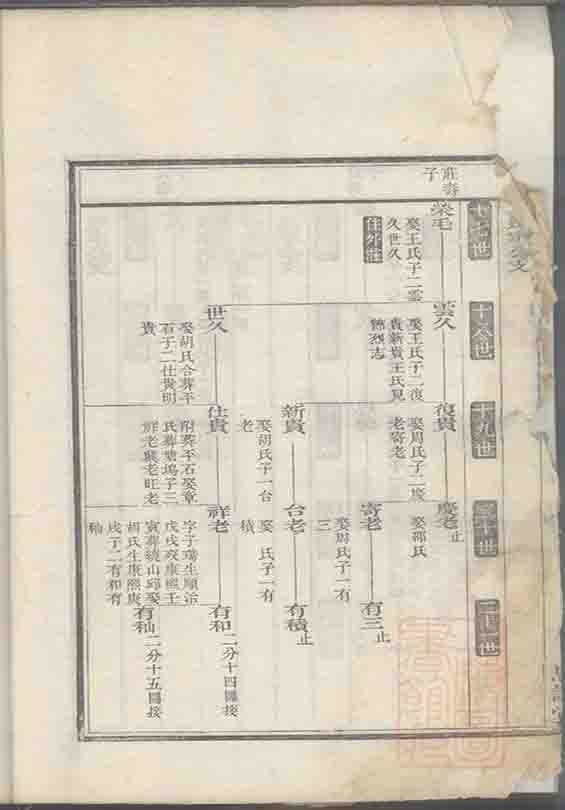 十七世
十八世
十九世
二十世
二十一世
莊壽
子
榮毛
娶王氏子二雲
久世久
住外蓬
雲久
娶王氏子二復
貴新貴王氏見
德烈志
世久
娶胡氏合葬平
石子二仕貴明
貴
復貴
娶周氏子二慶
老寄老
新貴
娶胡氏子一台
老
仕貴
附葬平石娶章
氏葬塘塢子三
祥老興老旺老
慶老止
娶邵氏
寄老
娶周氏子一有
三
台老
娶 氏子一有
積
祥老
字子瑞生順治
戊戌歿康熙壬
寅葬曉山邱娶
胡氏生康熙庚
戌子二有和有
秈
有三止
有積止
有和二分十四圖接
有秈二分十五圖接